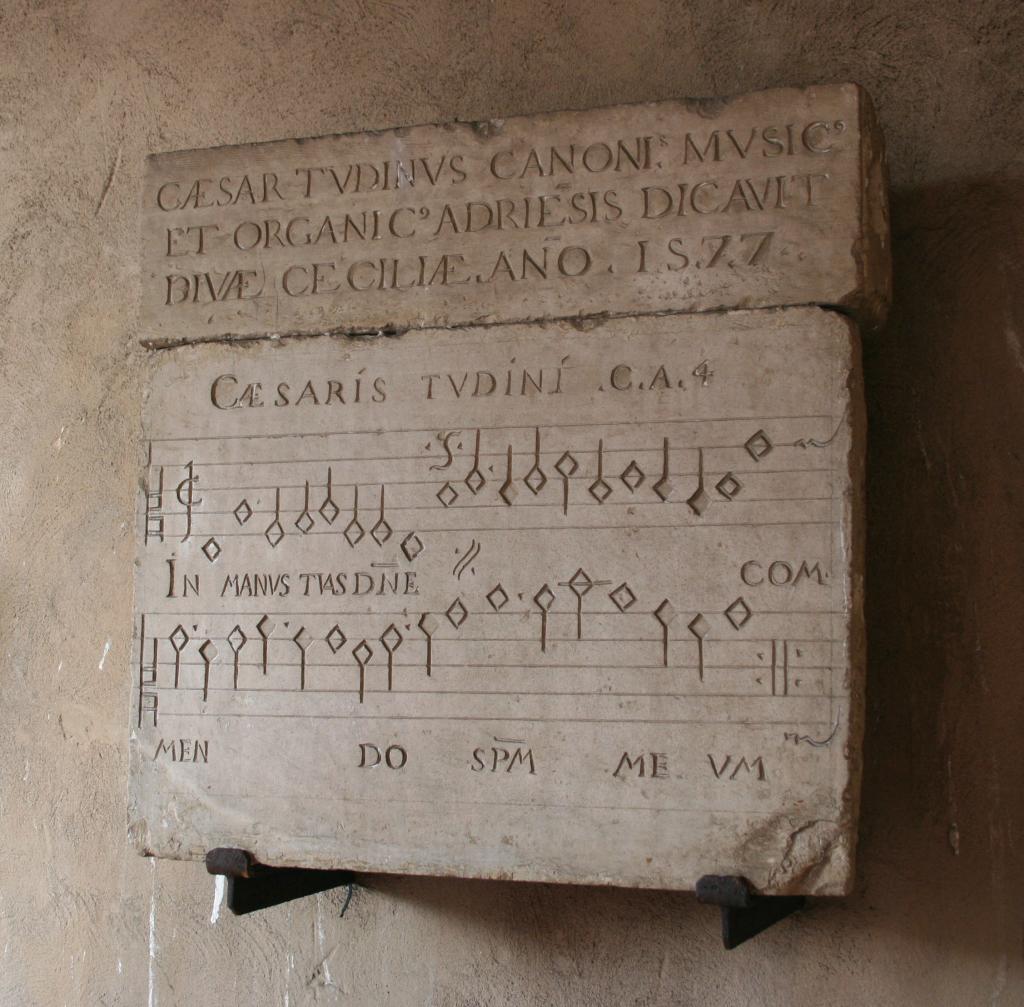 CÆSAR TVDINVS CANONI.ˢ MVSIC⁹
ET ORGANIC⁹ ADRIĒSIS DICAVIT
DIVÆ CECILIÆ. AÑO. 1577
CÆSARIS TVDINI .C.A.4
IN MANVS TVAS DÑE COM
MEN DO SPM̅ ME VM